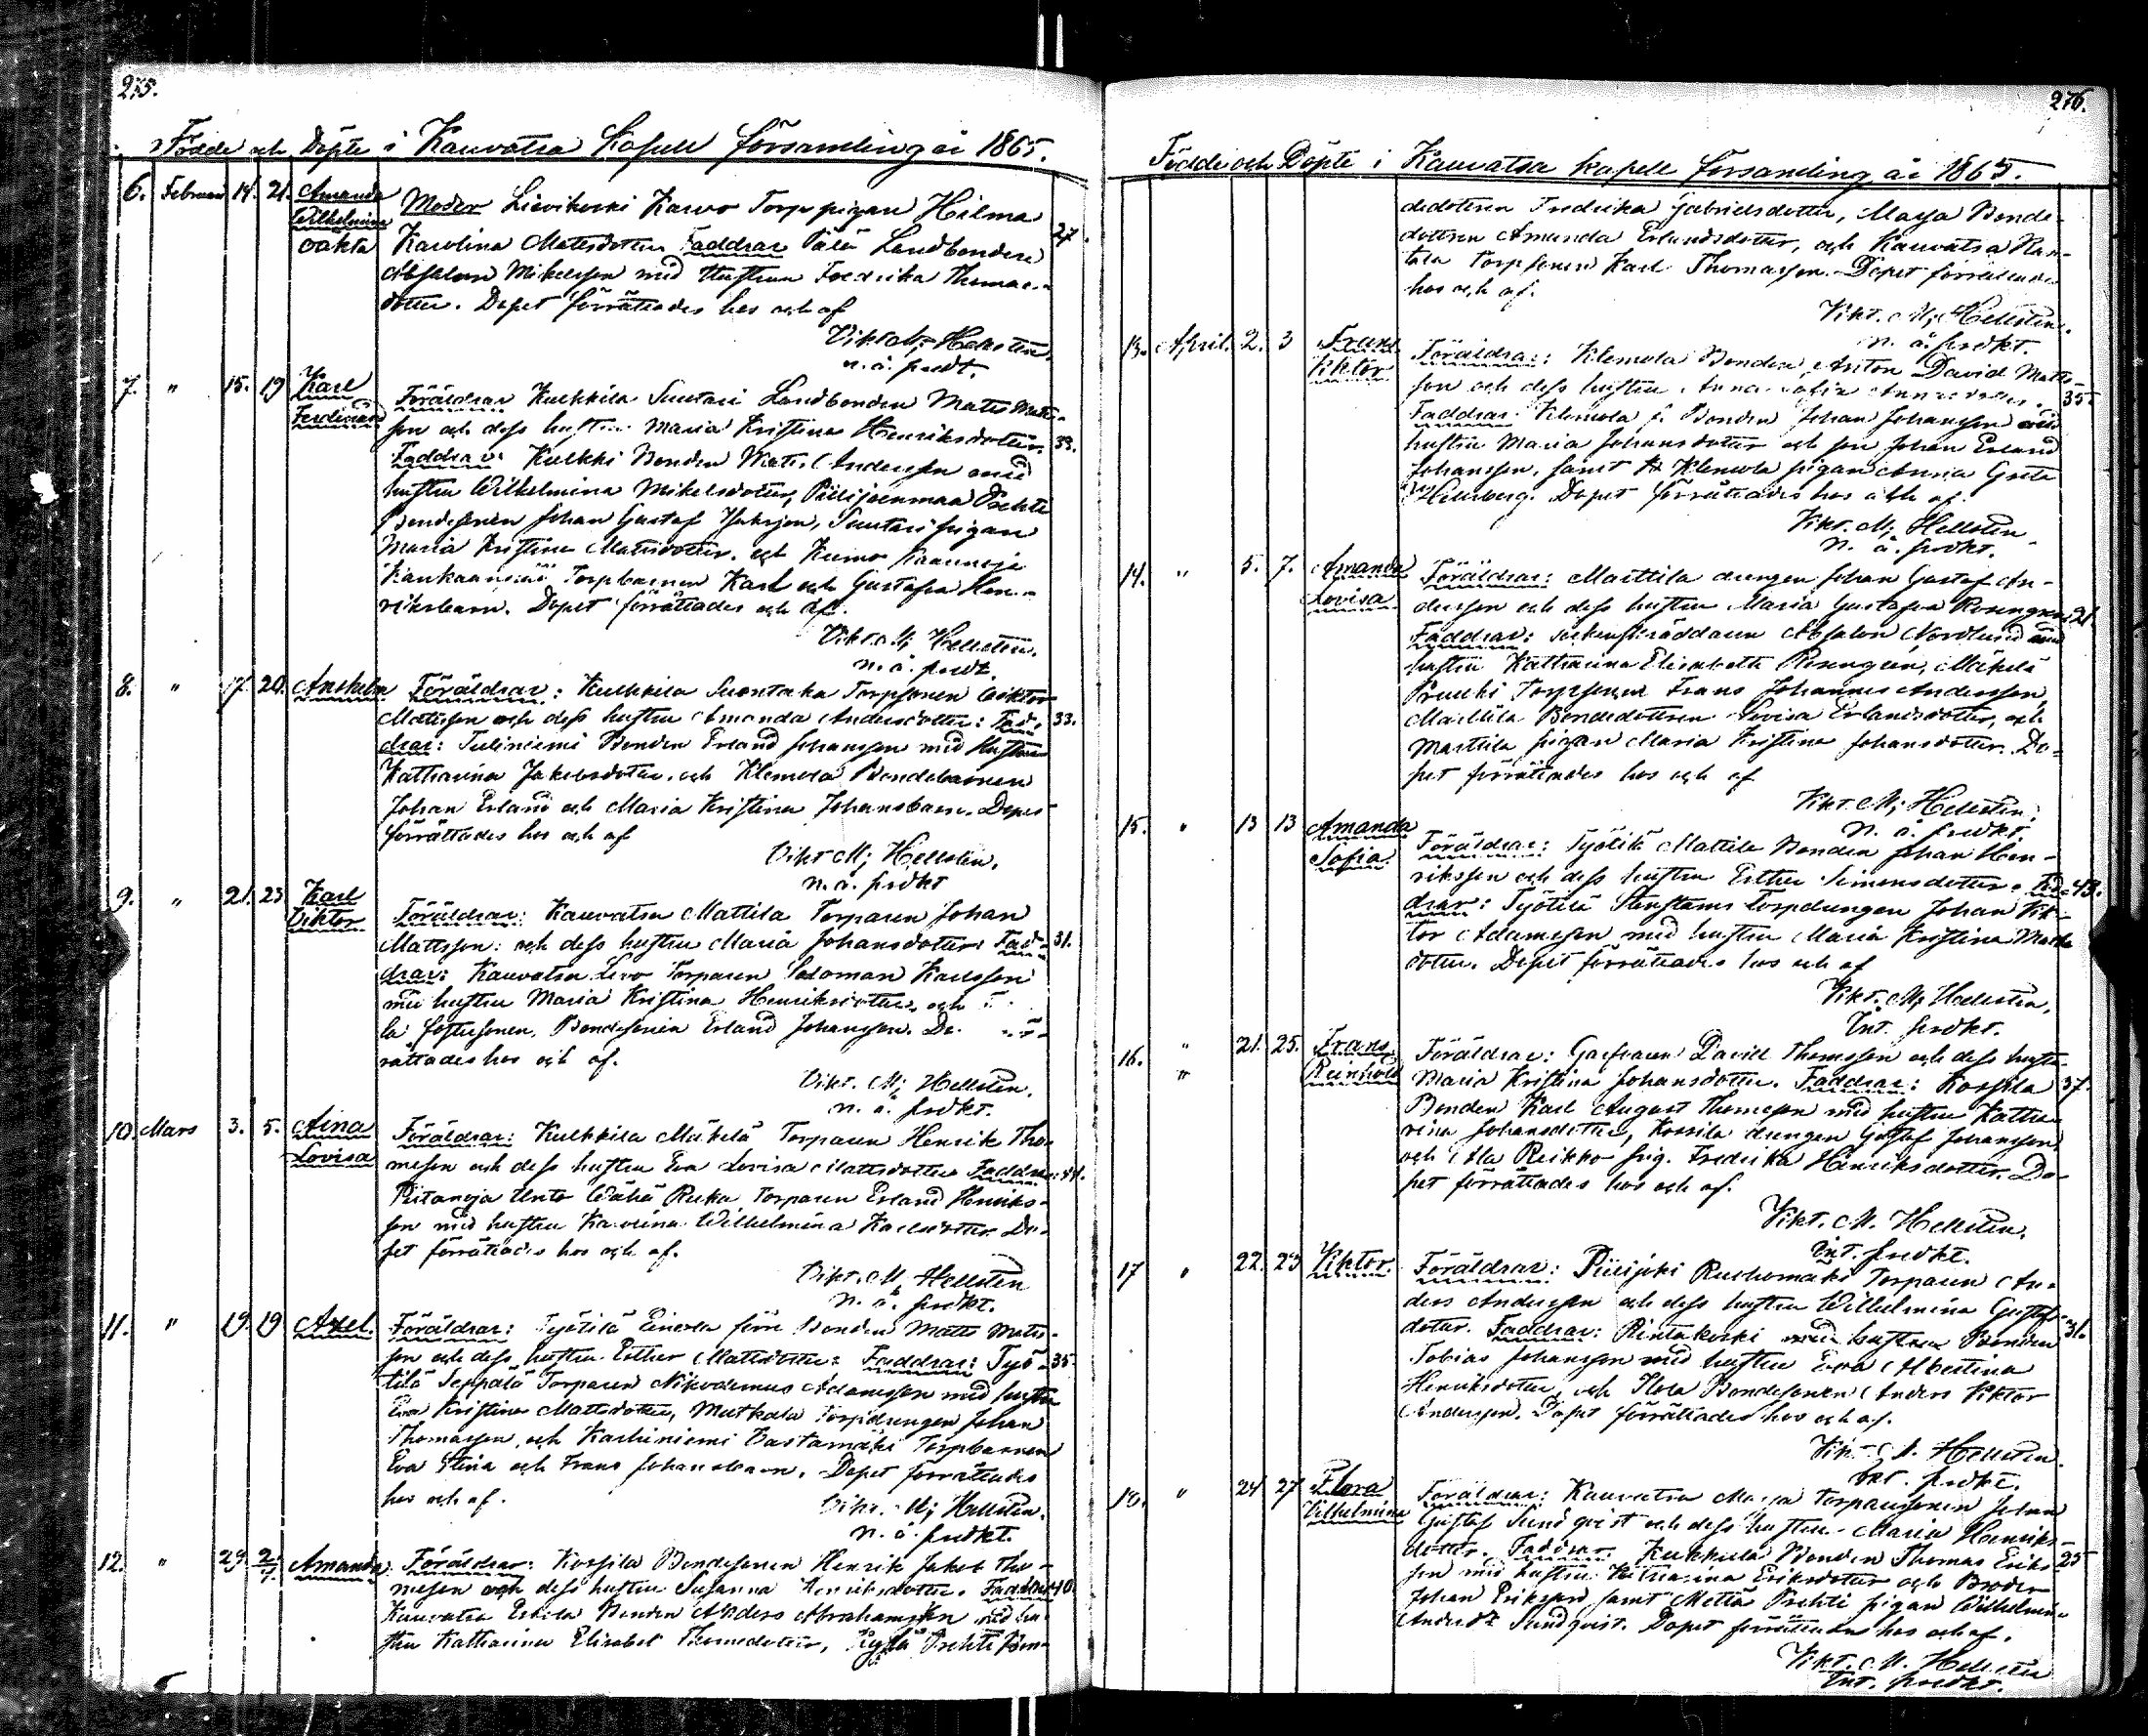 275.
Födde och Döpte i Kauvatsa Kapell församling år 1865.
6. Februari 14. 21. Amanda Wilhelmina oäkta
Moder Lievikoski Karvo Torp pigan Hilma
Karolina Mattsdotter Faddrar Pälä Landbonden 27.
Absalom Mikelsson med Hustrun Fredrika Thomas-
dotter. Dopet förrättades hos och af
Vikt. M; Hellstén,
n. a. predt.
7. " 15. 19 Karl Ferdinand
Föräldrar Kulkkila Suutari Landbonden Matts Matts-
son och dess hustru Maria Kristina Henriksdotter. 33.
Faddrar: Kulkki Bonden Matts Andersson med
hustru Wilhelmina Mikelsdotter, Piilijoenmaa Prehti
Bondesonen Johan Gustaf Jaksson, Suutari pigan
Maria Kristina Mattsdotter. och Kumo
Torpbarnen Karl och Gustafva Hen-
riksbarn. Dopet förrättades och af.
Vikt. M; Hellstén.
n. a. predt.
8. " 17. 20. Anshelm
Föräldrar: Kulkkila Suontaka Torpsonen
Mattsson och dess hustru Amanda Andersdotter: Fad- 33.
drar: Tuliniemi Bonden Erland Johansson med Hustrun
Katharina Jakobsdotter. och Klemola Bondebarnen
Johan Erland och Maria Kristina Johansbarn. Dopet
förrättades hos och af
Vikt M; Hellstén,
n. a. prdkt
9. " 21. 23 Karl Viktor
Föräldrar: Kauvatsa Mattila Torparen Johan
Mattsson: och dess hustru Maria Johansdotter: Fad- 31.
drar: Kauvatsa Levo Torparen Saloman Karlsson
med hustru Maria Kristina Henriksdotter, och
la fostersonen, Bondesonen Erland Johansson. Do-
rättades hos och af.
Vikt. M; Hellstén.
n. a. prdkt.
10. Mars 3. 5. Aina Lovisa
Föräldrar: Kulkkila Mäkelä Torparen Henrik Tho-
messon och dess hustru Eva Lovisa Mattsdotter Faddrar: 44.
Piitaneja Unto Wähä Ruka Torparen Erland Henriks-
son med hustru Karolina Wilhelmina Karlsdotter. Do-
pet förrättades hos och af.
Vikt. M, Hellstén
n. a. predkt.
11. " 19. 19 Axel.
Föräldrar: Työtilä Einola förre Bonden Matts Matts-
son och dess hustru Esther Mattsdotter: Faddrar: Työ- 35
tilä Seppälä Torparen Nikodemus Adamsson med hustru
Eva Kristina Mattsdotter, Mutkala Torpdrengen Johan
Thomasson, och Karhiniemi Vastamäki Torpbarnen
Eva Stina och Frans Johansbarn. Dopet förrättades
hos och af.
Vikt. M; Hellstén.
n. a. predkt.
12. " 29. 2/4. Amanda
Föräldrar: Kossila Bondesonen Henrik Jakob Tho-
messon och dess hustru Susanna Henriksdotter. Faddrar: 40.
Kauvatsa Eskola Bonden Anders Abrahamsson med hu-
stru Katharina Elisabet Thomedotter, Kylä Prehti Bon-
276.
Födde och Döpte i Kauvatsa kapell församling år 1865.
dedotren Fredrika Gabrielsdotter, Marja Bonde-
dottren Amanda Erlandsdotter, och Kauvatsa Kan-
tola Torpsonen Karl Thomasson. Dopet förrättades
hos och af.
Vikt. M; Hellstén.
n. a. predkt.
13. April. 2. 3 Frans Viktor
Föräldrar: Klemola Bonden Anton David Matts-
son och dess hustru Anna Sofia 35.
Faddrar: Klemola f. Bonden Johan Johansson med
hustru Maria Johansdotter och son Johan Erland
Johansson, samt Klemola pigan Anna Greta
Hellsberg. Dopet förrättades hos och af.
Vikt. M; Hellstén
n. a. predkt.
14. " 5. 7. Amanda Lovisa
Föräldrar: Marttila drengen Johan Gustaf An-
dersson och dess hustru Maria Gustafva Rosengren 21.
Faddrar: sockenskräddaren Absalon Nordlund med
hustru Katharina Elisabeth Rosengren, Mäkelä
Torpsonen Frans Johannes Andersson,
Marttila Bondedottren Lovisa Erlandsdotter, och
Marttila pigan Maria Kristina Johansdotter. Do-
pet förrättades hos och af
Vikt. M; Hellstén.
n. a. predkt.
15. " 13 13 Amanda Sofia
Föräldrar: Työtilä Mattila Bonden Johan Hen-
riksson och dess hustru Esther Simonsdotter. Fad- 43.
drar: Työtilä Stenstams torpdrengen Johan Vik-
tor Adamsson med hustru Maria Kristina Matts
dotter. Dopet förrättades hos och af
Vikt. M; Hellstén,
Int. predkt.
16. " 21. 25. Frans Reinhold
Föräldrar: Garfvaren David Thomsson och dess hustru
Maria Kristina Johansdotter. Faddrar: Kossila 37.
Bonden Karl August Thomsson med hustru Katha-
rina Johansdotter, Kossila drengen Gustaf Johansson,
och Ala Peikko pig. Fredrika Henriksdotter. Do-
pet förrättades hos och af.
Vikt. M. Hellstén.
Int. predkt.
17 " 22. 23 Viktor.
Föräldrar: Piilijoki Ruohomäki Torparen An-
ders Andersson och dess hustru Wilhelmina Gustafs-
dotter. Faddrar: Rintakoski Bonden 31.
Tobias Johansson med hustru Eva Albertina
Henriksdotter, och Bondesonen Anders Viktor
Andersson. Dopet förrättades hos och af.
Vikt. M. Hellstén.
Int. predkt.
18. " 24 27 Flora Vilhelmina
Föräldrar: Kauvatsa Marja Torparesonen Johan
Gustaf Sundqvist och dess hustru Maria Henriks-
dotter. Faddrar Kulkkila Bonden Thomas Eriks- 25
son med hustru Katharina Eriksdotter och Broder
Johan Eriksson samt Mettä Prehti pigan Wilhelmina
Andersdr Sundqvist. Dopet förrättades hos och af.
Vikt. M. Hellstén
Int. predkt.